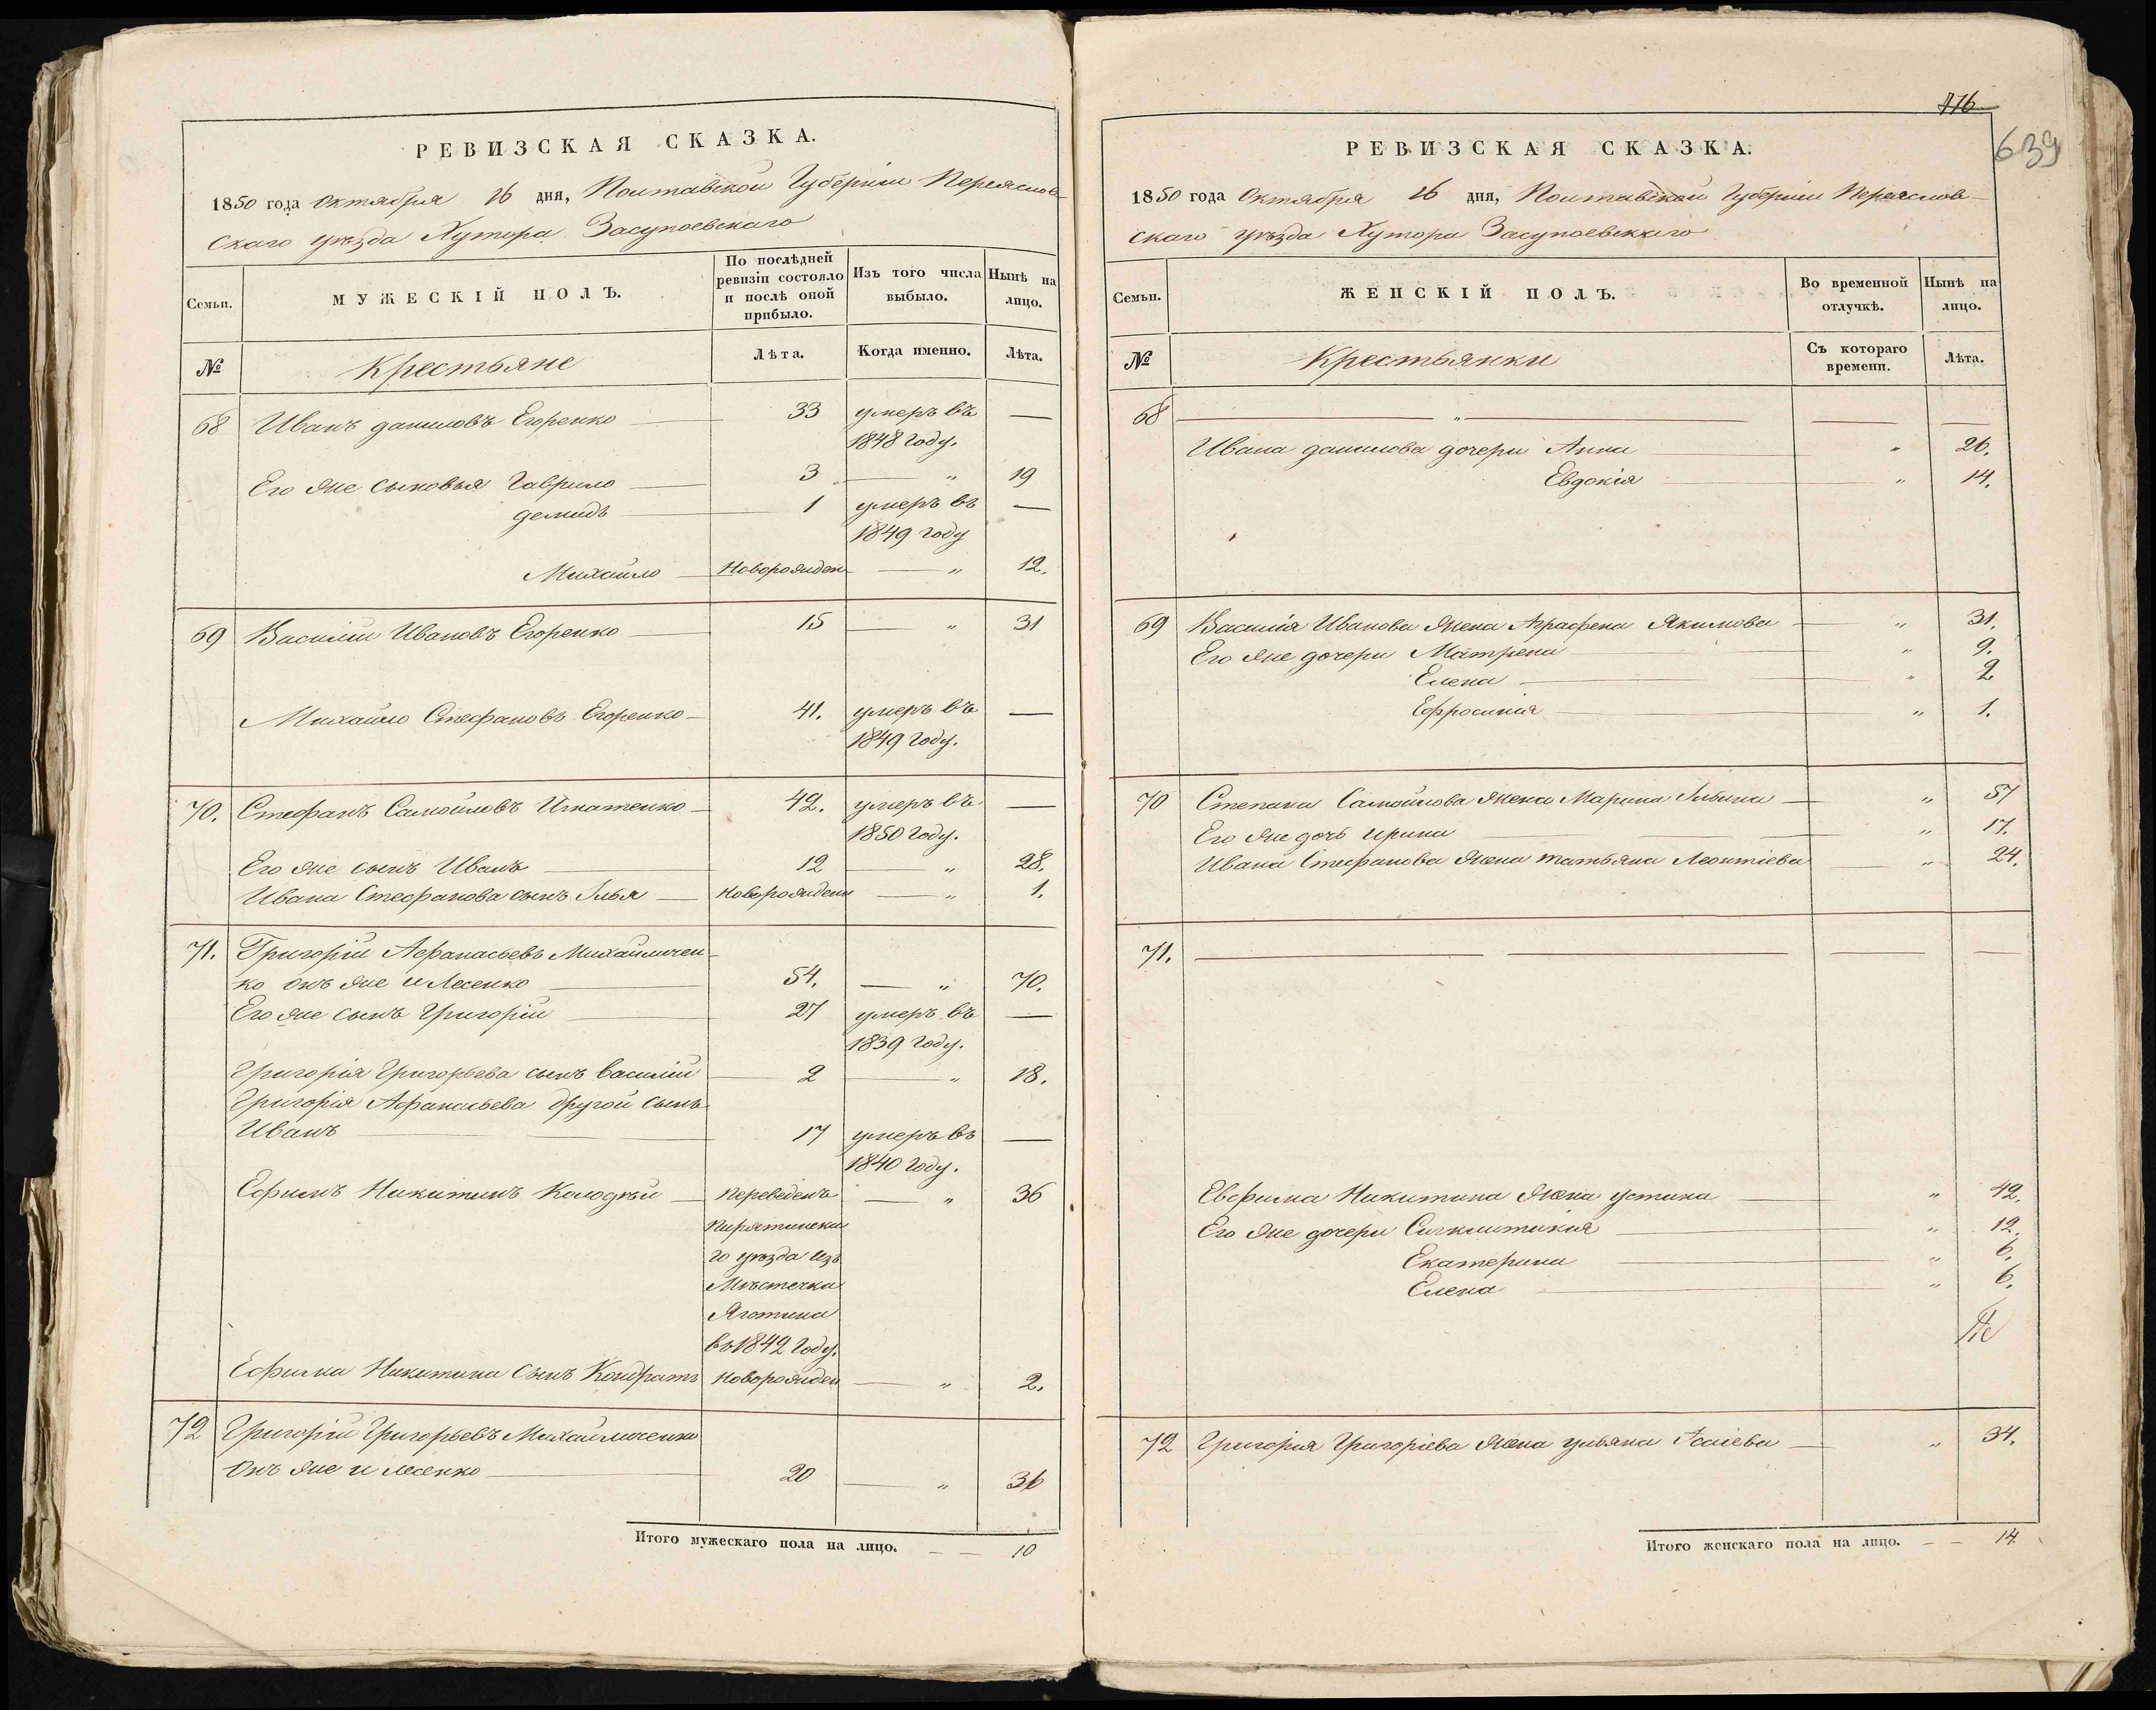 РЕВИЗСКАЯ СКАЗКА.
1850 года Октября 16 дня, Полтавской Губерніи Переяслов-
скаго уѣзда Хутора Засупоевскаго
Семьи. МУЖЕСКІЙ ПОЛЪ. По послѣдней ревизіи состояло и послѣ оной прибыло. Изъ того числа выбыло. Нынѣ на лицо.
№ Крестьяне Лѣта. Когда именно. Лѣта.
68 Иванъ даниловъ Егоренко 33 умеръ въ —
1848 году.
Его же сыновья Гаврило 3 — " 19
демидъ 1 умеръ въ —
1849 году
Михайло Новорожден — " 12.
69 Василій Ивановъ Егоренко 15 — " 31
Михайло Стефановъ Егоренко 41. умеръ въ —
1849 году.
70. Стефанъ Самойловъ Игнатенко 42. умеръ въ —
1850 году.
Его же сынъ Иванъ 12 — " 28.
Ивана Стефанова сынъ Илья Новорожденн — " 1.
71. Григорій Афанасьевъ Михайличен-
ко онъ же и Лесенко 54. — " 70.
Его же сынъ Григорій 27 умеръ въ —
1839 году.
Григорія Григорьева сынъ василій 2 — " 18.
Григорія Афанасьева другой сынъ
Иванъ 17 умеръ въ —
1840 году.
Ефимъ Никитинъ Колодѣй переведенъ — " 36
Пирятинска
го уѣзда изъ
Мѣстечка
Яготина
въ 1842 году.
Ефима Никитина сынъ Кондратъ новорожден — " 2.
72 Григорій Григорьевъ Михайличенко
Онъ же и лесенко 20 — " 36
Итого мужескаго пола на лицо. — — 10
176
639
РЕВИЗСКАЯ СКАЗКА.
1850 года Октября 16 дня, Полтавской Губерніи Переяслов-
скаго уѣзда Хутора Засупоевскаго
Семьи. ЖЕНСКІЙ ПОЛЪ. Во временной отлучкѣ. Нынѣ на лицо.
№ Крестьянки Съ котораго времени. Лѣта.
68 — " — — —
Ивана данилова дочери Анна " 26.
Евдокія " 14.
69 Василія Иванова жена Аграфена Якимова " 31.
Его же дочери Матрена " 9.
Елена " 2
Ефросинія " 1.
70 Степана Самойлова жена Марина Ильина " 57
Его же дочь ирина " 17.
Ивана Стефанова жена татьяна Леонтіева " 24.
71. — — — —
Евфима Никитина жена устина " 42.
Его же дочери Сигклитикія " 12.
Екатерина " 6.
Елена " 6.
72 Григорія Григоріева жена ульяна Исаіева " 34.
Итого женскаго пола на лицо. — — 14.